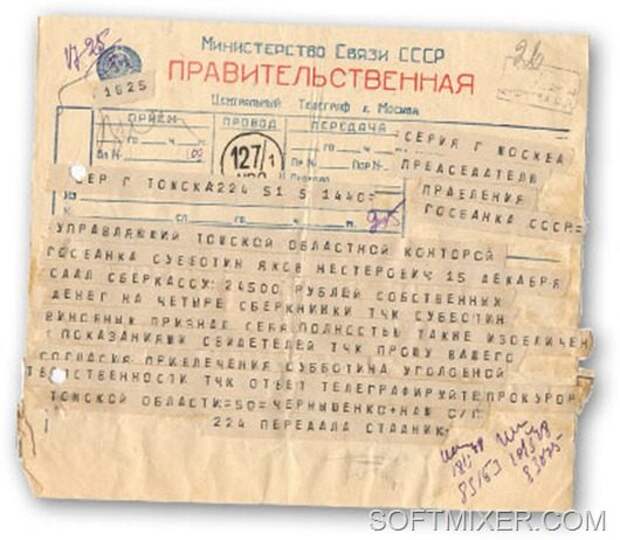 17-25
26
Министерство Связи СССР
ПРАВИТЕЛЬСТВЕННАЯ
1625
Центральный Телеграф г. Москва
ПРИЁМ ПРОВОД ПЕРЕДАЧА
го ч. м.
127/1
го ч. м.
Бл № Пр № Пор №
СЕРИЯ Г МОСКВА
ПРЕДСЕДАТЕЛЮ
ПРАВЛЕНИЯ
ГОСБАНКА СССР=
СЕР Г ТОМСКА 224 51 5 1440=
ИЗ
СЛ. ГО Ч. М.
УПРАВЛЯЮЩИЙ ТОМСКОЙ ОБЛАСТНОЙ КОНТОРОЙ
ГОСБАНКА СУББОТИН ЯКОВ НЕСТЕРОВИЧ 15 ДЕКАБРЯ
СДАЛ СБЕРКАССУ 24500 РУБЛЕЙ СОБСТВЕННЫХ
ДЕНЕГ НА ЧЕТЫРЕ СБЕРКНИЖКИ ТЧК СУББОТИН
ВИНОВНЫМ ПРИЗНАЛ СЕБЯ ПОЛНОСТЬЮ ТАКЖЕ ИЗОБЛИЧЕН
ПОКАЗАНИЯМИ СВИДЕТЕЛЕЙ ТЧК ПРОШУ ВАШЕГО
СОГЛАСИЯ ПРИВЛЕЧЕНИЯ СУББОТИНА УГОЛОВНОЙ
ТВЕТСТВЕННОСТИ ТЧК ОТВЕТ ТЕЛЕГРАФИРУЙТЕ ПРОКУРОР
ТОМСКОЙ ОБЛАСТИ=50=ЧЕРНЫШЕНКО+НАШ С/Г
224 ПЕРЕДАЛА СТАДНИК
SOFTMIXER.COM